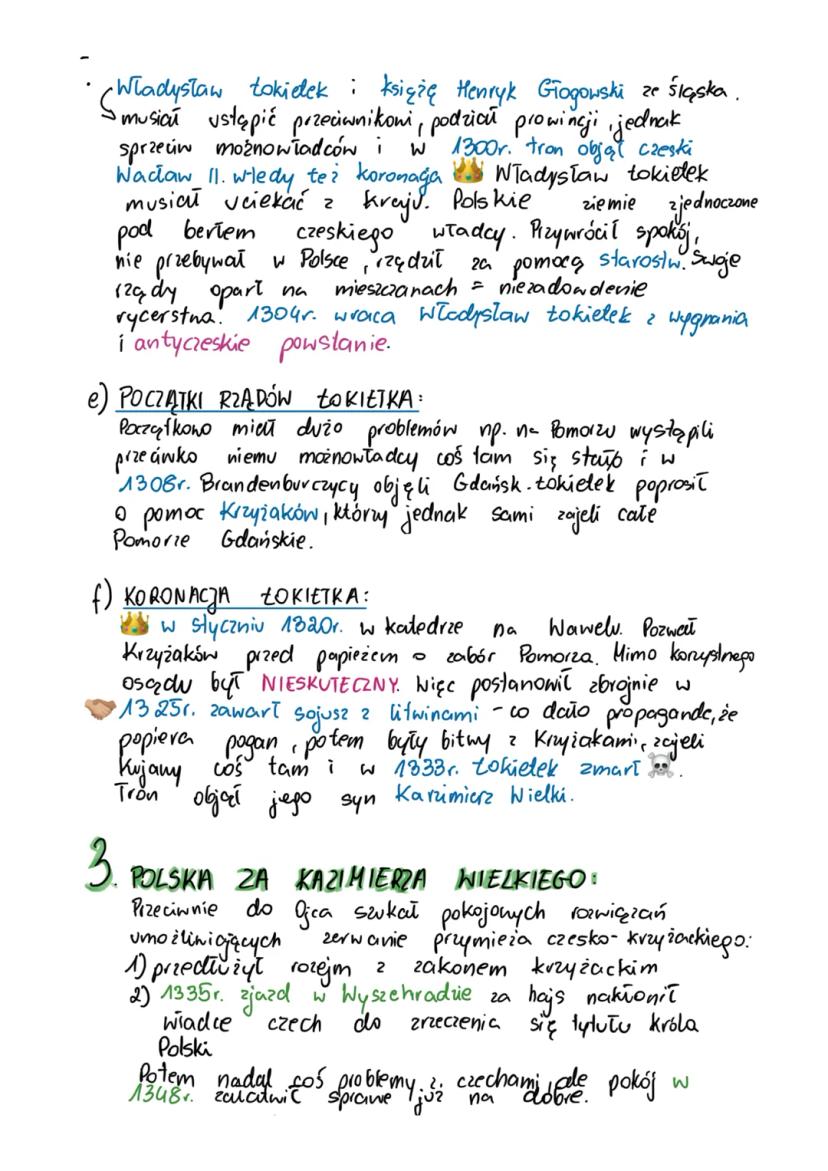 -
· Władysław Łokietek i książę Henryk Głogowski ze śląska.
musiał ustąpić przeciwnikowi, podział prowincji, jednak
sprzeciw możnowładców i w 1300r. tron objął czeski
Wacław II. wtedy też koronacja 👑 Władysław Łokietek
musiał uciekać z kraju. Polskie ziemie zjednoczone
pod berłem czeskiego władcy. Przywrócił spokój,
nie przebywał w Polsce, rządził za pomocą starostw. Swoje
rządy oparł na mieszczanach = niezadowolenie
rycerstwa. 1304r. wraca Władysław Łokietek z wygnania
i antyczeskie powstanie.
e) POCZĄTKI RZĄDÓW ŁOKIETKA:
Początkowo miał dużo problemów np. na Pomorzu wystąpili
przeciwko niemu możnowładcy coś tam się stało i w
1308r. Brandenburczycy objęli Gdańsk. Łokietek poprosił
o pomoc Krzyżaków, którzy jednak sami zajeli całe
Pomorze Gdańskie.
f) KORONACJA ŁOKIETKA:
👑 w styczniu 1320r. w katedrze na Wawelu. Pozwał
Krzyżaków przed papieżem o zabór Pomorza. Mimo korzystnego
osądu był NIESKUTECZNY. Więc postanowił zbrojnie w
🤝 1325r. zawarł sojusz z litwinami - co dało propagandę, że
popiera pogan, potem były bitwy z Krzyżakami, zajeli
Kujawy coś tam i w 1333r. Łokietek zmarł ☠️.
Tron objął jego syn Kazimierz Wielki.
3. POLSKA ZA KAZIMIERZA WIELKIEGO:
Przeciwnie do Ojca szukał pokojowych rozwiązań
umożliwiających zerwanie przymieża czesko-krzyżackiego:
1) przedłużył rozejm z zakonem krzyżackim
2) 1335r. zjazd w Wyszehradzie za hajs nakłonił
władce czech do zrzeczenia się tytułu króla
Polski
Potem nadal coś problemy z czechami, ale pokój w
1348r. załatwił sprawe już na dobre.